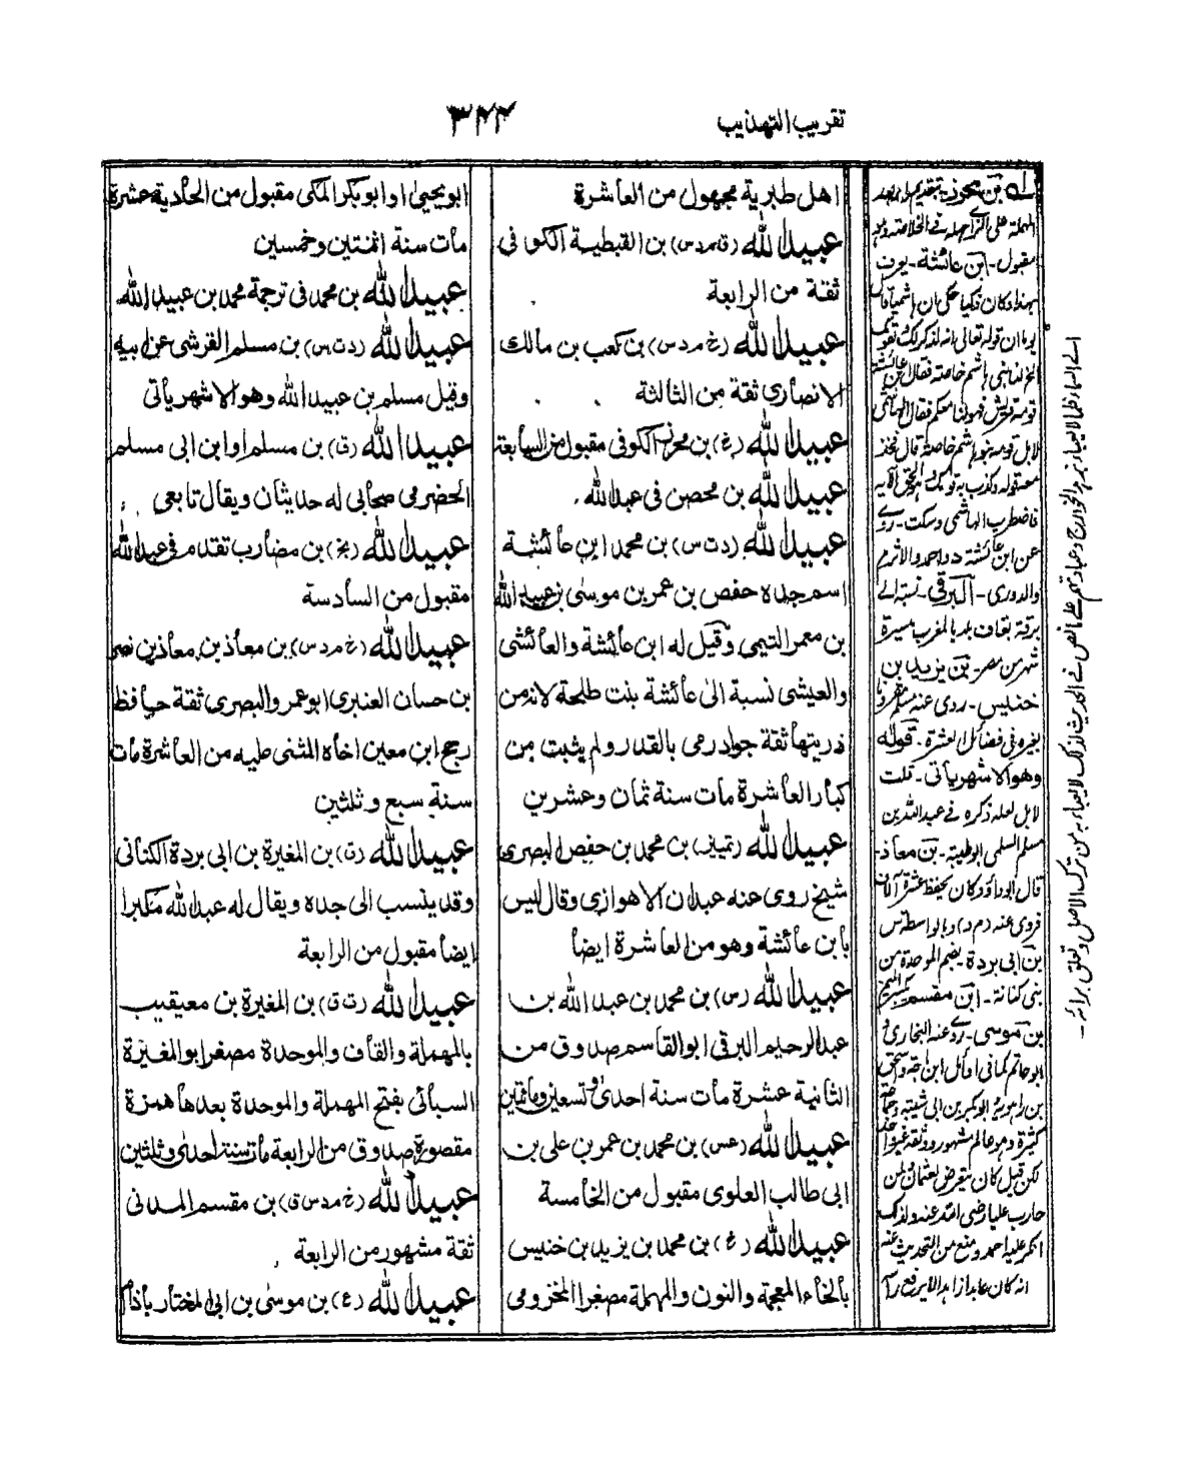 تقريب التهذيب
٣٤٤
اهل طبرية مجهول من العاشرة
عبيدالله (ق م د س) بن القبطية الكوفى
ثقة من الرابعة
عبيدالله (خ م د س) بن كعب بن مالك
الانصارى ثقة من الثالثة
عبيدالله (غ) بن محرز الكوفى مقبول من السابعة
عبيدالله بن محصن فى عبدالله
عبيدالله (د ت س) بن محمد ابن عائشة
اسم جده حفص بن عمر بن موسى بن عبيدالله
بن معمر التيمى وقيل له ابن عائشة والعائشى
والعيشى نسبة الى عائشة بنت طلحة لانه من
ذريتها ثقة جواد رمى بالقدر ولم يثبت من
كبار العاشرة مات سنة ثمان وعشرين
عبيدالله (تمييز) بن محمد بن حفص البصرى
شيخ روى عنه عبدان الاهوازى وقال ليس
بابن عائشة وهو من العاشرة ايضا
عبيدالله (س) بن محمد بن عبد الله بن
عبدالرحيم البرقى ابو القاسم صدوق من
الثانية عشرة مات سنة احدى وتسعين ومائتين
عبيدالله (عس) بن محمد بن عمر بن على بن
ابى طالب العلوى مقبول من الخامسة
عبيدالله (غ) بن محمد بن يزيد بن خنيس
بالخاء المعجمة والنون والمهملة مصغرا المخزومى
ابو يحيى او ابو بكر المكى مقبول من الحادية عشرة
مات سنة اثنتين وخمسين
عبيدالله بن محمد فى ترجمة محمد بن عبيدالله
عبيدالله (د ت س) بن مسلم القرشى عن ابيه
وقيل مسلم بن عبيدالله وهو الاشهر ياتى
عبيدالله (ق) بن مسلم او ابن ابى مسلم
الحضرمى صحابى له حديثان ويقال تابعى
عبيدالله (بخ) بن مضارب تقدم فى عبدالله
مقبول من السادسة
عبيدالله (خ م د س) بن معاذ بن معاذ بن نصر
بن حسان العنبرى ابو عمرو البصرى ثقة حافظ
رجح ابن معين اخاه المثنى عليه من العاشرة مات
سنة سبع وثلثين
عبيدالله (ق) بن المغيرة بن ابى بردة الكنانى
وقد ينسب الى جده ويقال له عبدالله مكبرا
ايضا مقبول من الرابعة
عبيدالله (ت ق) بن المغيرة بن معيقيب
بالمهملة والقاف والموحدة مصغرا ابو المغيرة
السبائى بفتح المهملة والموحدة بعدها همزة
مقصورة صدوق من الرابعة مات سنة احدى وثلثين
عبيدالله (خ م د س ق) بن مقسم المدنى
ثقة مشهور من الرابعة
عبيدالله (ع) بن موسى بن ابى المختار باذام
المهملة على الزاء جعله فى الخلاصة
مقبول - ابن عائشة - يعرف
يوما ان قوله تعالى انه لذكر لك ولقومك
لابل قومه بنو هاشم خاصة قال فخذ
فاضطرب الهاشمى وسكت - روى
عن ابن عائشة د واحمد والاثرم
والدورى - البرقى - نسبة الى
شهر من مصر - بن يزيد بن
خنيس - روى عنه مسلم
بغيره فى فضائل العشرة - قوله
وهو الاشهر ياتى - قلت
لابل لعله ذكره فى عبدالله بن
مسلم السلمى ابو طيبة - بن معاذ -
قال ابو داؤد كان يحفظ عشرة آلاف
فروى عنه (م د) وبالواسطة س
بن ابى بردة بضم الموحدة من
بنى كنانة - ابن مقسم
بن موسى - روى عنه البخارى و
كثيرة وهو عالم مشهور وثقه غير واحد
لكن قيل كان يتعرض بعثمان لمن
حارب عليا رضى الله عنه ولذلك
انكر عليه احمد ومنع من التحديث عنه
انه كان عابدا زاهدا لا يرفع راسه
الى السماء